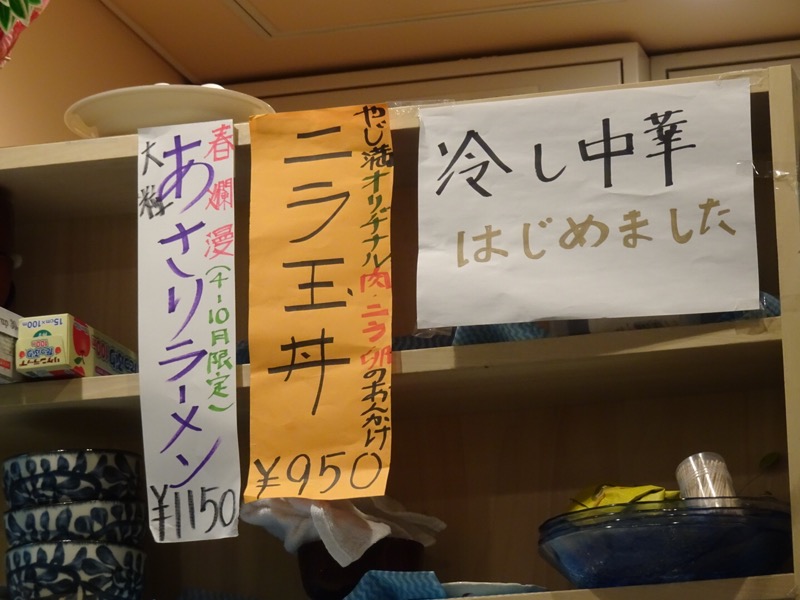 大粒
あさりラーメン
春爛漫(4-10月限定)
¥1150
ニラ玉丼
やじ満オリヂナル肉・ニラ・卵のあんかけ
¥950
冷し中華
はじめました
15cm×100m